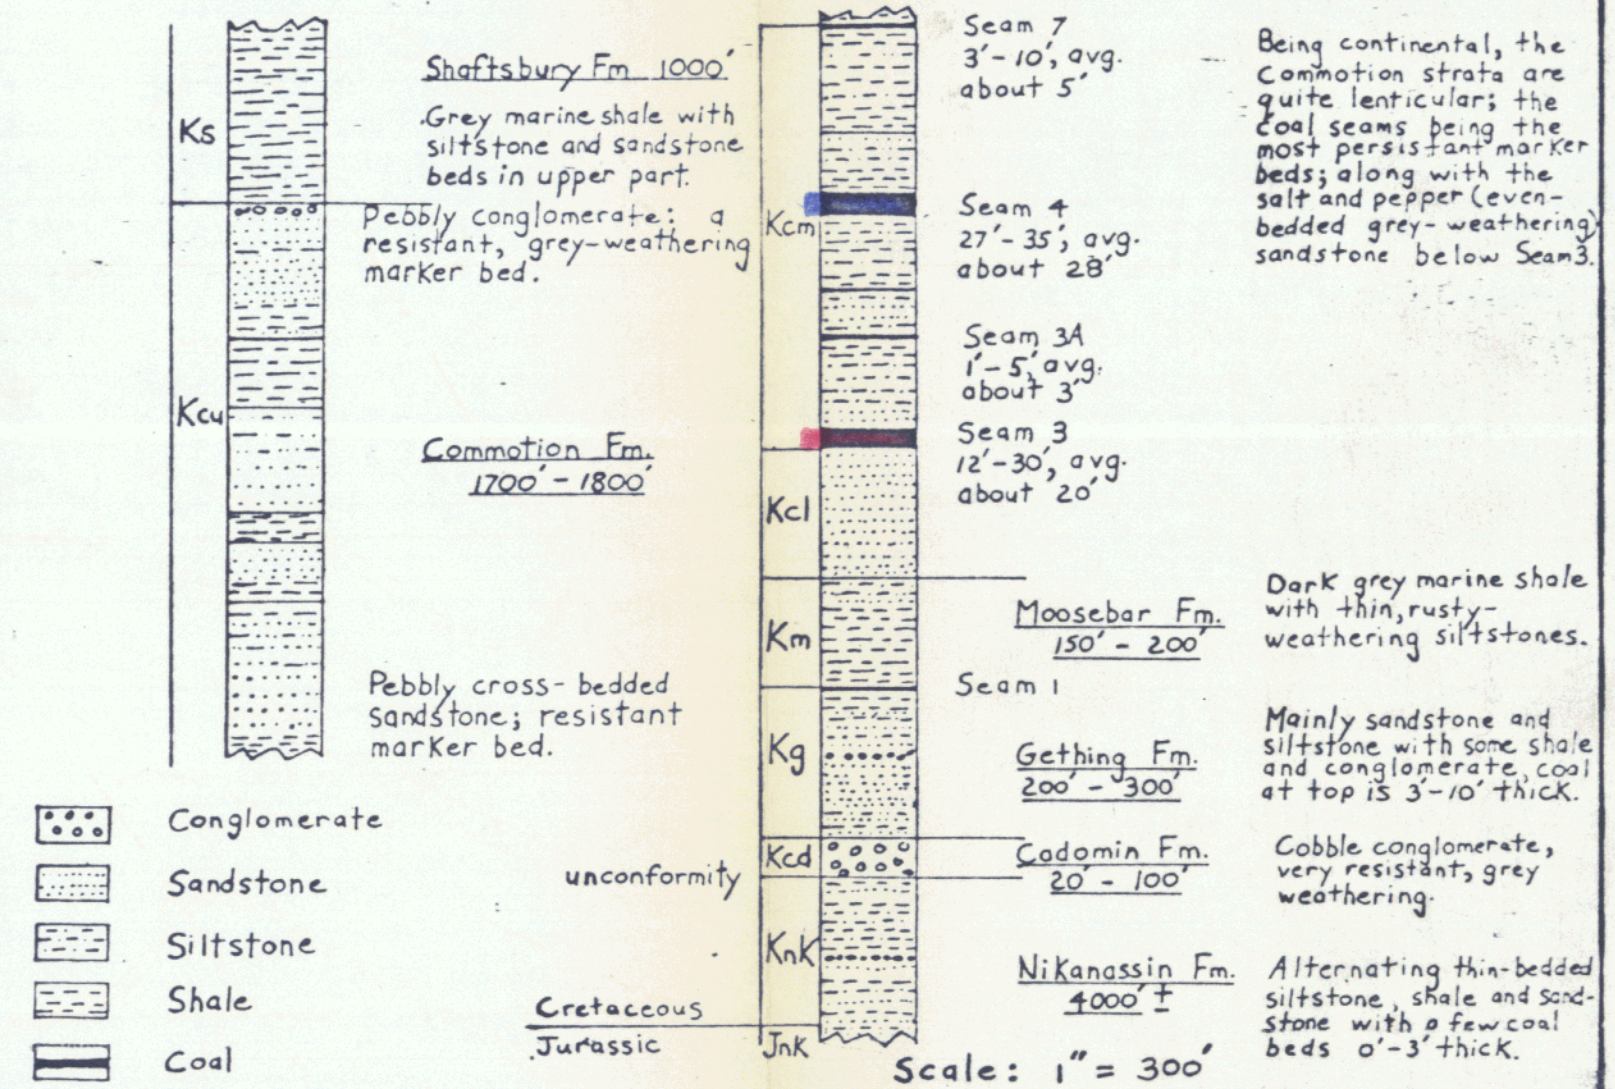 Ks
Shaftsbury Fm 1000'
Grey marine shale with
siltstone and sandstone
beds in upper part.
Pebbly conglomerate: a
resistant, grey-weathering
marker bed.
Kcu
Commotion Fm.
1700' - 1800'
Pebbly cross-bedded
sandstone; resistant
marker bed.
Conglomerate
Sandstone
Siltstone
Shale
Coal
unconformity
Cretaceous
Jurassic
Kcm
Kcl
Km
Kg
Kcd
KnK
JnK
Seam 7
3'-10', avg.
about 5'
Seam 4
27'-35', avg.
about 28'
Seam 3A
1'-5', avg.
about 3'
Seam 3
12'-30', avg.
about 20'
Moosebar Fm.
150' - 200'
Seam 1
Gething Fm.
200' - 300'
Cadomin Fm.
20' - 100'
Nikanassin Fm.
4000' ±
Scale: 1" = 300'
Being continental, the
Commotion strata are
quite lenticular; the
coal seams being the
most persistant marker
beds; along with the
salt and pepper (even-
bedded grey-weathering)
sandstone below Seam 3.
Dark grey marine shale
with thin, rusty-
weathering siltstones.
Mainly sandstone and
siltstone with some shale
and conglomerate, coal
at top is 3'-10' thick.
Cobble conglomerate,
very resistant, grey
weathering.
Alternating thin-bedded
siltstone, shale and sand-
stone with a few coal
beds 0'-3' thick.